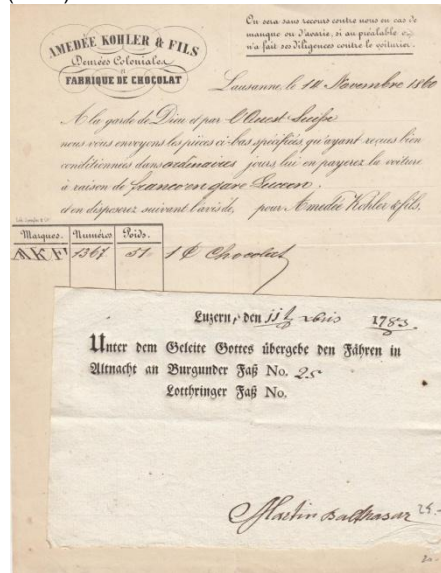 On sera sans recours contre nous en cas de
manque ou d'avarie, si au préalable on
n'a fait ses diligences contre le voiturier.
AMEDÉE KOHLER & FILS
Denrées Coloniales
ET
FABRIQUE DE CHOCOLAT
Lausanne, le 14 Novembre 1860
A la garde de Dieu et par l'Ouest Suisse
nous vous envoyons les pièces ci-bas spécifiées, qu'ayant reçues bien
conditionnées dans ordinaires jours, lui en payerez la voiture
à raison de franco en gare Luzern.
et en disposerez suivant l'avis de, pour Amedée Kohler & fils,
Marques. Numéros Poids.
A K F 1367 51 1 C Chocolat
Luzern, den 11t xbris 1783.
Unter dem Geleite Gottes übergebe den Fähren in
Altnacht an Burgunder Faß No. 25
Lotthringer Faß No.
Martin Balthasar
25.-
20.-